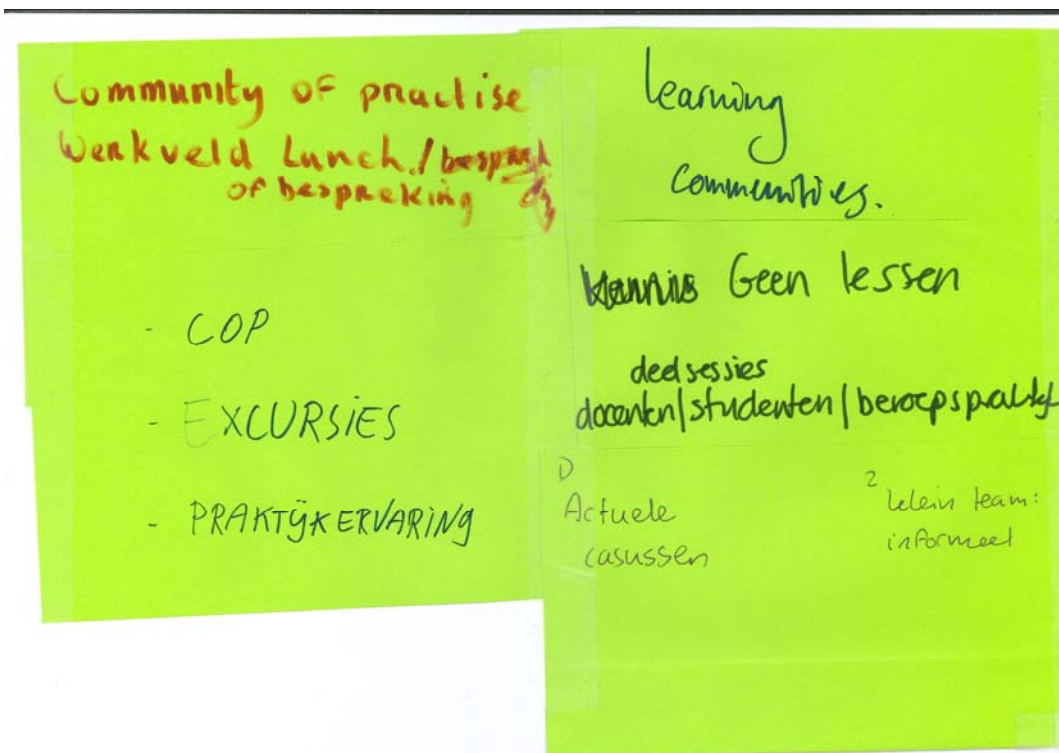 Community of practise
Werkveld Lunch /
of bespreking
- COP
- EXCURSIES
- PRAKTIJKERVARING
learning
communities.
Geen lessen
deelsessies
docenten/studenten/beroepspraktijk
1)
Actuele
casussen
2
klein team:
informeel